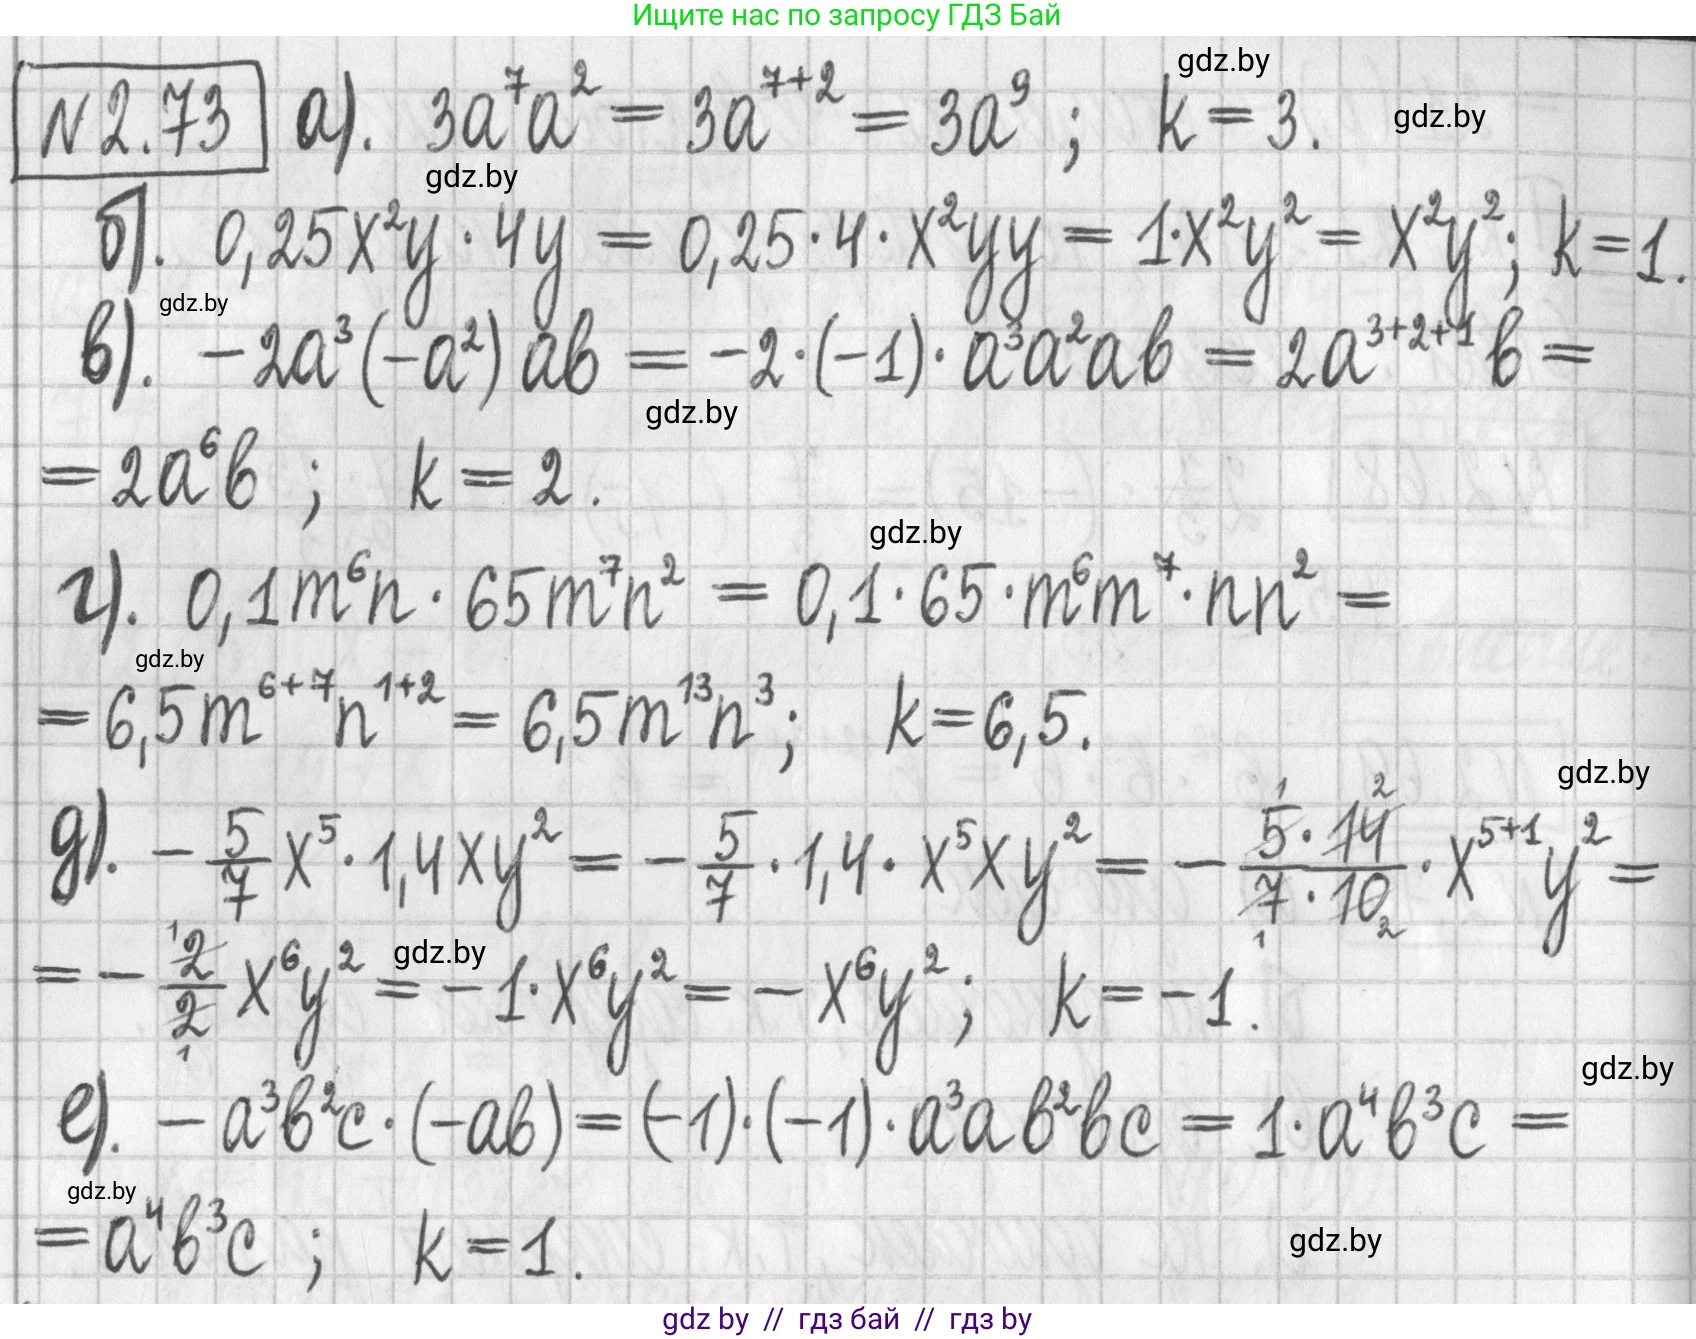 Ищите нас по запросу ГДЗ Бай
gdz.by
N2.73 а). 3a⁷a² = 3a⁷⁺² = 3a⁹ ; k = 3.
gdz.by
gdz.by
б). 0,25x²y · 4y = 0,25 · 4 · x²yy = 1·x²y² = x²y²; k=1.
gdz.by
в). −2a³(−a²) ab = −2·(−1)· a³a²ab = 2a³⁺²⁺¹b =
gdz.by
= 2a⁶b ; k = 2.
gdz.by
г). 0,1m⁶n · 65m⁷n² = 0,1 · 65 · m⁶m⁷ · nn² =
gdz.by
= 6,5m⁶⁺⁷n¹⁺² = 6,5m¹³n³; k=6,5.
gdz.by
д). −5/7 x⁵ · 1,4xy² = −5/7 · 1,4 · x⁵xy² = −(5 · 14)/(7 · 10) · x⁵⁺¹y² =
1 2
1 2
= −2/2 x⁶y² = −1·x⁶y² = −x⁶y²; k=−1.
1
1
gdz.by
gdz.by
е). −a³b²c · (−ab) = (−1)·(−1)· a³ab²bc = 1·a⁴b³c =
gdz.by
= a⁴b³c ; k=1.
gdz.by
gdz by // гдз бай // гдз by